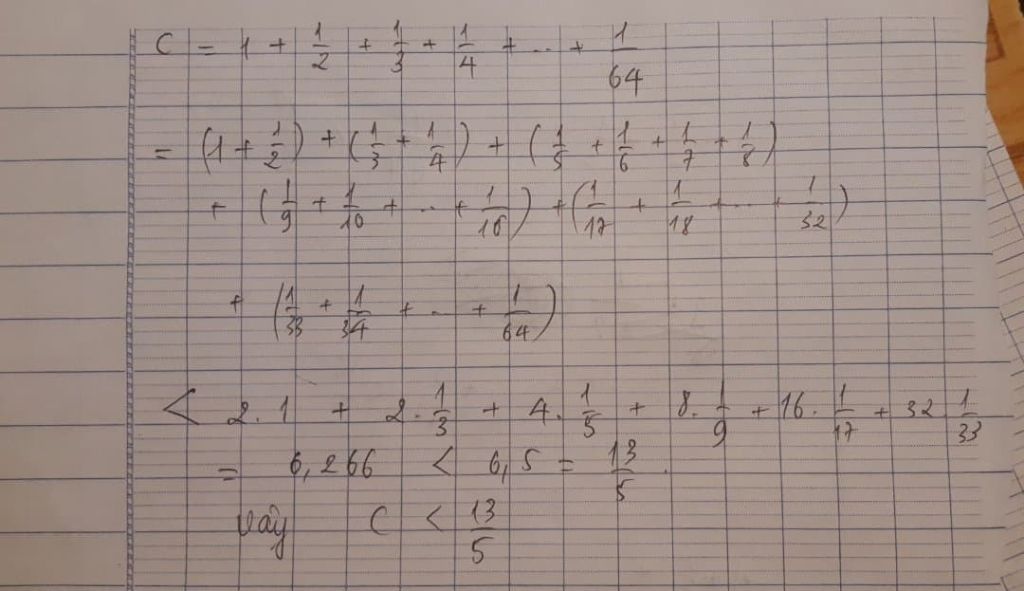 C = 1 + 1/2 + 1/3 + 1/4 + ... + 1/64
= (1 + 1/2) + (1/3 + 1/4) + (1/5 + 1/6 + 1/7 + 1/8)
+ (1/9 + 1/10 + ... + 1/16) + (1/17 + 1/18 + ... + 1/32)
+ (1/33 + 1/34 + ... + 1/64)
< 2.1 + 2.1/3 + 4.1/5 + 8.1/9 + 16.1/17 + 32 1/33
= 6,266 < 6,5 = 13/5.
vậy C < 13/5